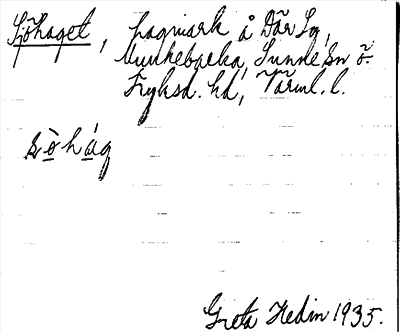 Sjöhaget, hagmark å Där Sg,
Munkebacka, Sunne Sn ö.
Fryksd. hd, Värml. l.
sö̀hág
Greta Hedin 1935.